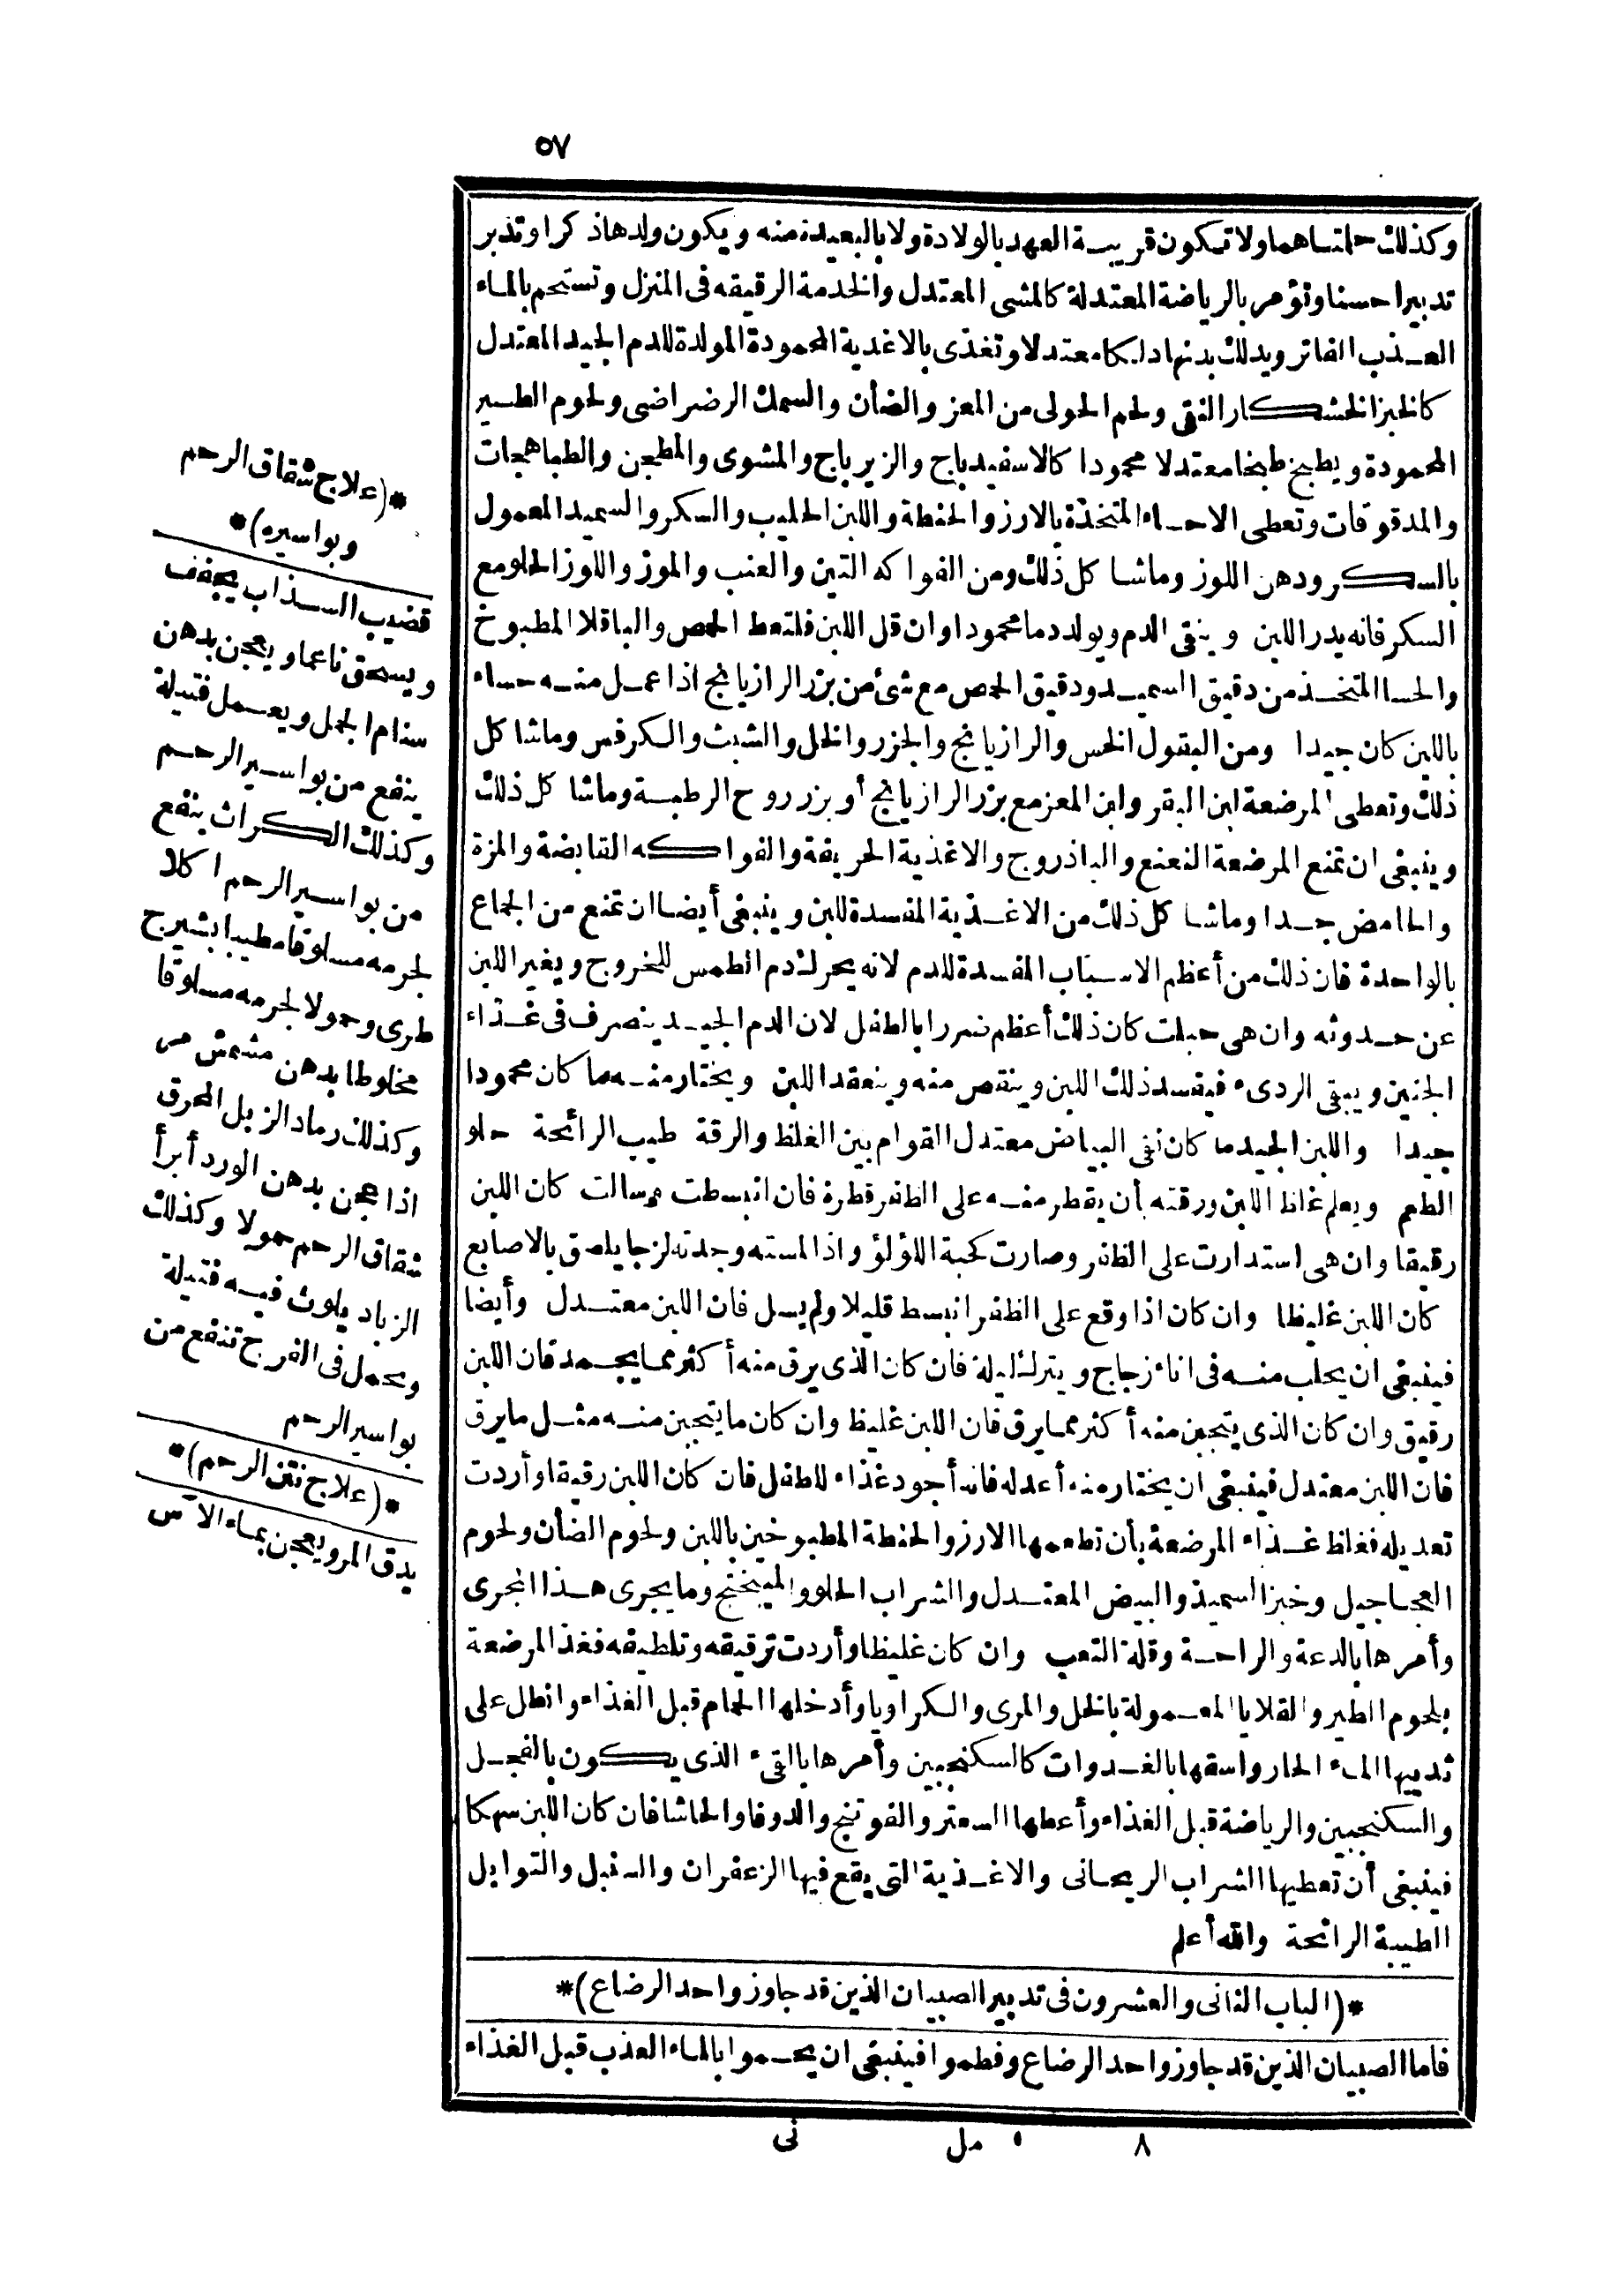 ٥٧
وكذلك حلمتاهما ولا تكون قريبة العهد بالولادة ولا بالبعيدة منه ويكون ولدها ذكرا وتدبر
تدبيرا حسنا وتؤمر بالرياضة المعتدلة كالمشى المعتدل والخدمة الرقيقه فى المنزل وتستحم بالماء
العذب الفاتر ويدلك بدنها دلكا معتدلا وتغذى بالاغدية المحمودة المولدة للدم الجيد المعتدل
كالخبز الخشكار النقى ولحم الحولى من المعز والضأن والسمك الرضراضى ولحوم الطير
المحمودة ويطبخ طبخا معتدلا محمودا كالاسفيدباج والزيرباج والمشوى والمطجن والطباهجات
والمدقوقات وتعطى الاحساء المتخذة بالارز والحنطة واللبن الحليب والسكر والسميد المعمول
بالسكر ودهن اللوز وماشا كل ذلك ومن الفواكه التين والعنب والموز واللوز الحلو مع
السكر فانه يدر اللبن وينقى الدم ويولد دما محمودا وان قل اللبن فلتعط الحمص والباقلا المطبوخ
والحسا المتخذ من دقيق السميد ودقيق الحمص مع شئ من بزر الرازيانج اذا عمل منه حساء
باللبن كان جيدا ومن البقول الخس والرازيانج والجزر والخل والشبث والكرفس وماشا كل
ذلك وتعطى المرضعة لبن البقر ولبن المعز مع بزر الرازيانج أو بزر روح الرطبة وماشا كل ذلك
وينبغى ان تمنع المرضعة النعنع والباذروج والاغذية الحريفة والفواكه القابضة والمزة
والحامض جدا وماشا كل ذلك من الاغذية المفسدة للبن وينبغى أيضا ان تمنع من الجماع
بالواحدة فان ذلك من أعظم الاسباب المفسدة للدم لانه يحرك دم الطمس للخروج ويغير اللبن
عن حدوثه وان هى حبلت كان ذلك أعظم ضررا بالطفل لان الدم الجيد ينصرف فى غذاء
الجنين ويبقى الردىء فيفسد ذلك اللبن وينقص منه وينعقد اللبن ويختار منه ما كان محمودا
جيدا واللبن الجيد ما كان نقى البياض معتدل القوام بين الغلظ والرقة طيب الرائحة حلو
الطعم ويعلم غلظ اللبن ورقته بأن يقطر منه على الظفر قطرة فان انبسطت وسالت كان اللبن
رقيقا وان هى استدارت على الظفر وصارت كحبة اللؤلؤ واذا لمسته وجدته لزجا يلصق بالاصابع
كان اللبن غليظا وان كان اذا وقع على الظفر انبسط قليلا ولم يسل فان اللبن معتدل وأيضا
فينبغى ان يحلب منه فى اناء زجاج ويترك ليلة فان كان الذى يرق منه أكثر مما يجمد فان اللبن
رقيق وان كان الذى يتجبن منه أكثر مما يرق فان اللبن غليظ وان كان ما يتجبن منه مثل ما يرق
فان اللبن معتدل فينبغى ان يختار منه أعدله فانه أجود غذاء للطفل فان كان اللبن رقيقا وأردت
تعديله فغلظ غذاء المرضعة بأن تطعمها الارز والحنطة المطبوخين باللبن ولحوم الضأن ولحوم
العجاجيل وخبز السميذ والبيض المعتدل والشراب الحلو والميبختج وما يجرى هذا المجرى
وأمرها بالدعة والراحة وقلة التعب وان كان غليظا وأردت ترقيقه وتلطيفه فغذ المرضعة
بلحوم الطير والقلايا المعمولة بالخل والمرى والكراويا وأدخلها الحمام قبل الغذاء وانطل على
ثدييها الماء الحار واسقها بالغدوات كالسكنجبين وأمرها بالقىء الذى يكون بالفجل
والسكنجبين والرياضة قبل الغذاء وأعطها السعتر والفوتنج والدوفا والحاشا فان كان اللبن سهكا
فينبغى أن تعطيها الشراب الريحانى والاغذية التى يقع فيها الزعفران والسنبل والتوابل
الطيبة الرائحة والله أعلم
*(الباب الثانى والعشرون فى تدبير الصبيان الذين قد جاوزوا حد الرضاع)*
فاما الصبيان الذين قد جاوزوا حد الرضاع وفطموا فينبغى ان يحموا بالماء العذب قبل الغذاء
٨ مل نى
*(علاج شقاق الرحم
وبواسيره)*
قضيب السذاب يجفف
ويسحق ناعما ويعجن بدهن
سنام الجمل ويعمل فتيلة
ينفع من بواسير الرحم
وكذلك الكراث ينفع
من بواسير الرحم اكلا
لجرمه مسلوقا مطيبا بشيرج
طرى وحمولا لجرمه مسلوقا
مخلوطا بدهن مشمش مر
وكذلك رماد الزبل المحرق
اذا عجن بدهن الورد أبرأ
شقاق الرحم حمولا وكذلك
الزباد يلوث فيه فتيلة
وتحمل فى الفرج تنفع من
بواسير الرحم
*(علاج نتن الرحم)*
يدق المر ويعجن بماء الآس